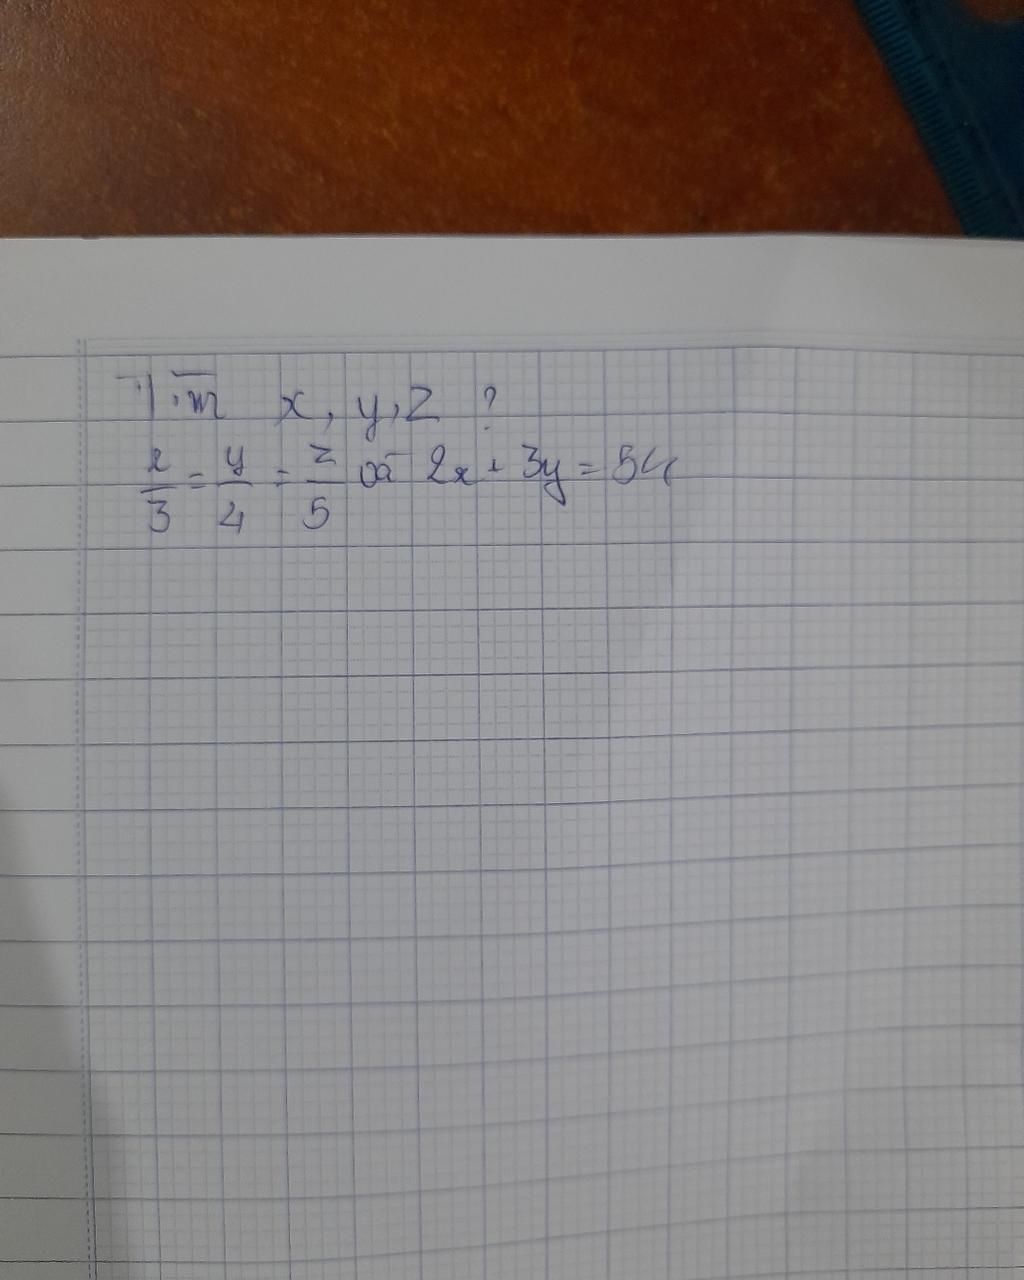 Tìm x, y, z ?
x/3 = y/4 = z/5 và 2x + 3y = 54